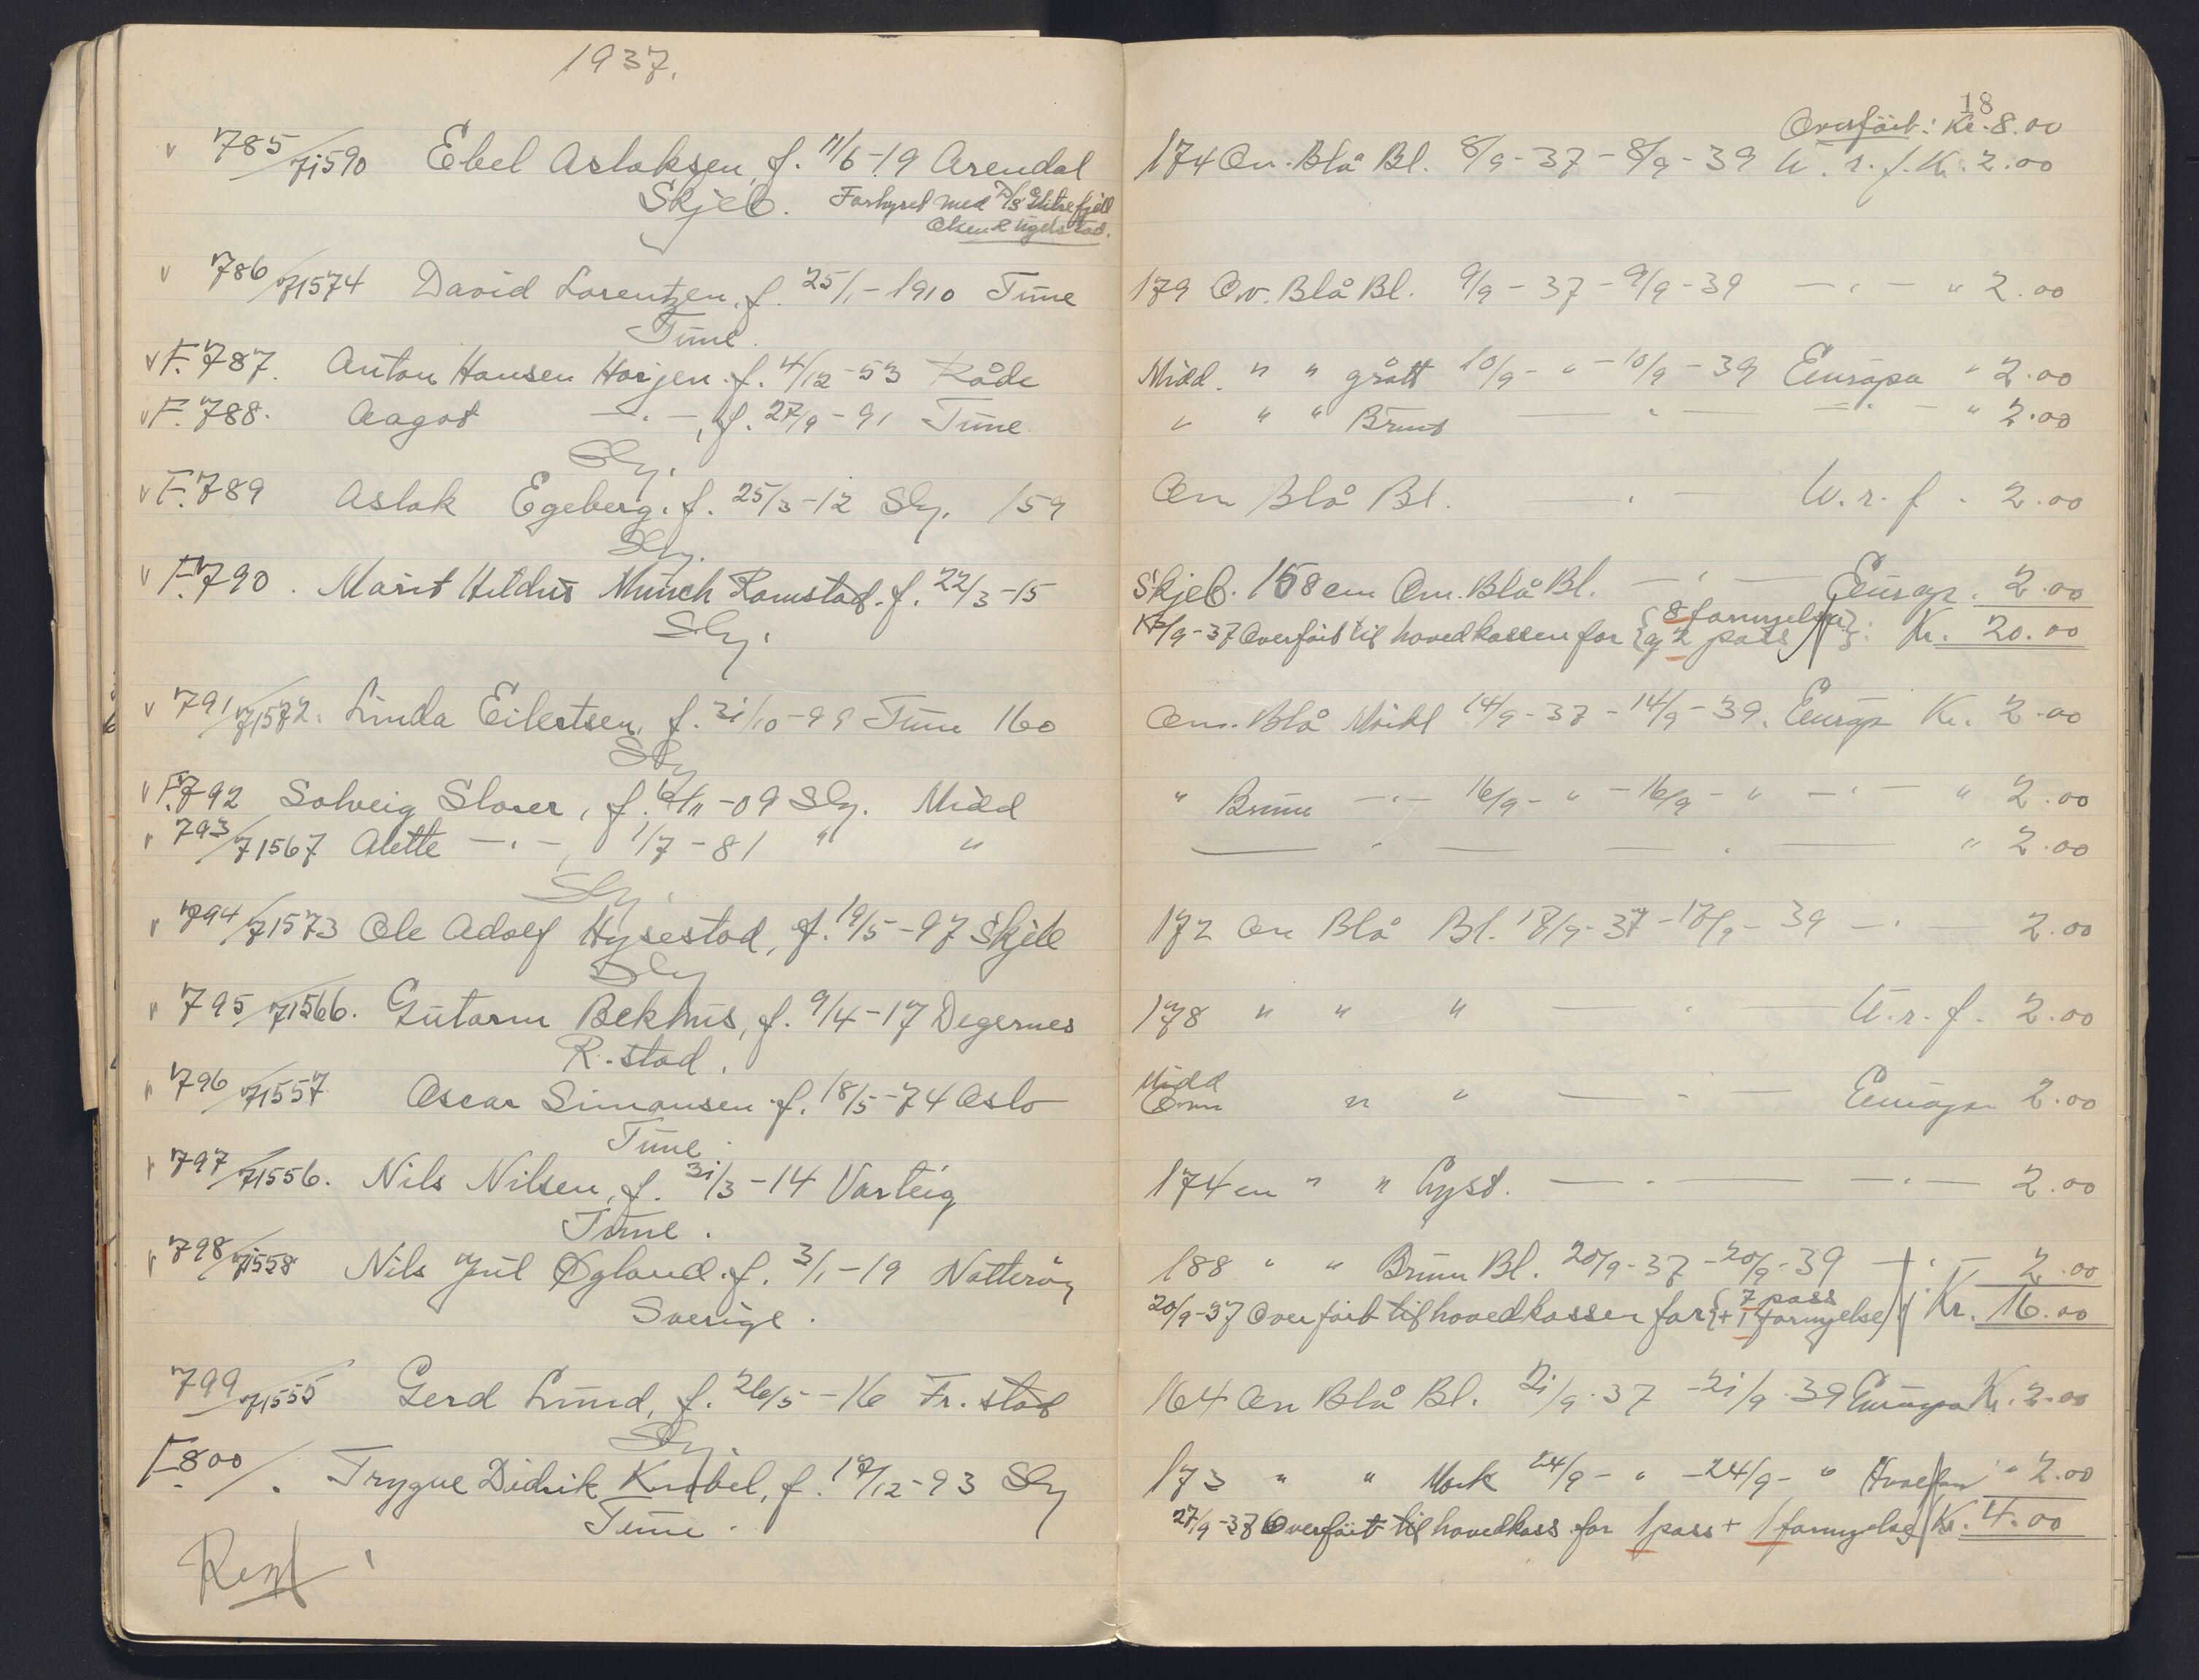 1937.
785/71590 Ebel Aslaksen, f. 11/6-19 Arendal
Skjeb. Forhyret med M/S
Olsen & Ugelstad.
786/71574 David Lorentzen, f. 25/1-1910 Tune
Tune.
F. 787. Anton Hansen f. 4/12-53 Råde
F. 788. Aagot —„— , f. 27/9-91 Tune.
Slg.
F. 789 Aslak Egeberg, f. 25/3-12 Slg. 159
Slg.
F. 790. Marit Münch Ramstad. f. 22/3-15
Slg.
791/71572. Linda Eilertsen, f. 31/10-99 Tune 160
Slg
F. 792 Solveig Sloser, f. /11-09 Slg. Midd
793/71567 Alette —„—, 1/7-81 " "
Slg.
794/71573 Ole Adolf Hysestad, f. 19/5-97 Skjeb
Slg
795/71566. Gutorm Bekhus, f. 9/4-17 Degernes
R.stad.
796/71557 Oscar Simonsen f. 18/5-74 Oslo
Tune.
797/71556. Nils Nilsen, f. 31/3-14 Varteig
Tune.
798/71558 Nils Jul Øgland. f. 3/1-19 Nøtterøy
Sverige.
799/71555 Gerd Lund, f. 26/5-16 Fr.stad
Slg.
F. 800/. Trygve Didrik f. 17/12-93 Slg
Tune.
18
Overført: Kr. 8.00
174 Cm. Blå Bl. 8/9-37 - 8/9-39 U. r. f. Kr. 2.00
179 Cm. Blå Bl. 9/9-37 - 9/9-39 —„— " 2.00
Midd. " " grått 10/9- " - 10/9-39 Europa " 2.00
" " " Brunt —„— —„— " 2.00
Cm Blå Bl. —„— U. r. f. 2.00
Skjeb. 158 cm Cm. Blå Bl. —„— Europ. 2.00
/9-37 Overført til hovedkassen for {8 fornyelser og 2 pass}: Kr. 20.00
Cm. Blå Mörkt 14/9-37 - 14/9-39. Europ Kr. 2.00
" Brune —„— 16/9- " - 16/9- " —„— " 2.00
—„— —„— " 2.00
172 Cm Blå Bl. 18/9-37 - 18/9-39 —„— 2.00
178 " " " —„— U. r. f. 2.00
Midd
Cm " " —„— Europa 2.00
174 cm " " Lyst. —„— —„— 2.00
188 " " Brun Bl. 20/9-37 - 20/9-39 —„— 2.00
20/9-37 Overført til hovedkassen for {7 pass + 1 fornyelse} Kr. 16.00
164 Cm Blå Bl. 21/9-37 - 21/9-39 Europa Kr. 2.00
173 " " Mørk 24/9- " - 24/9- " " 2.00
27/9-37 Overført til hovedkass. for 1 pass + 1 fornyelse Kr. 4.00